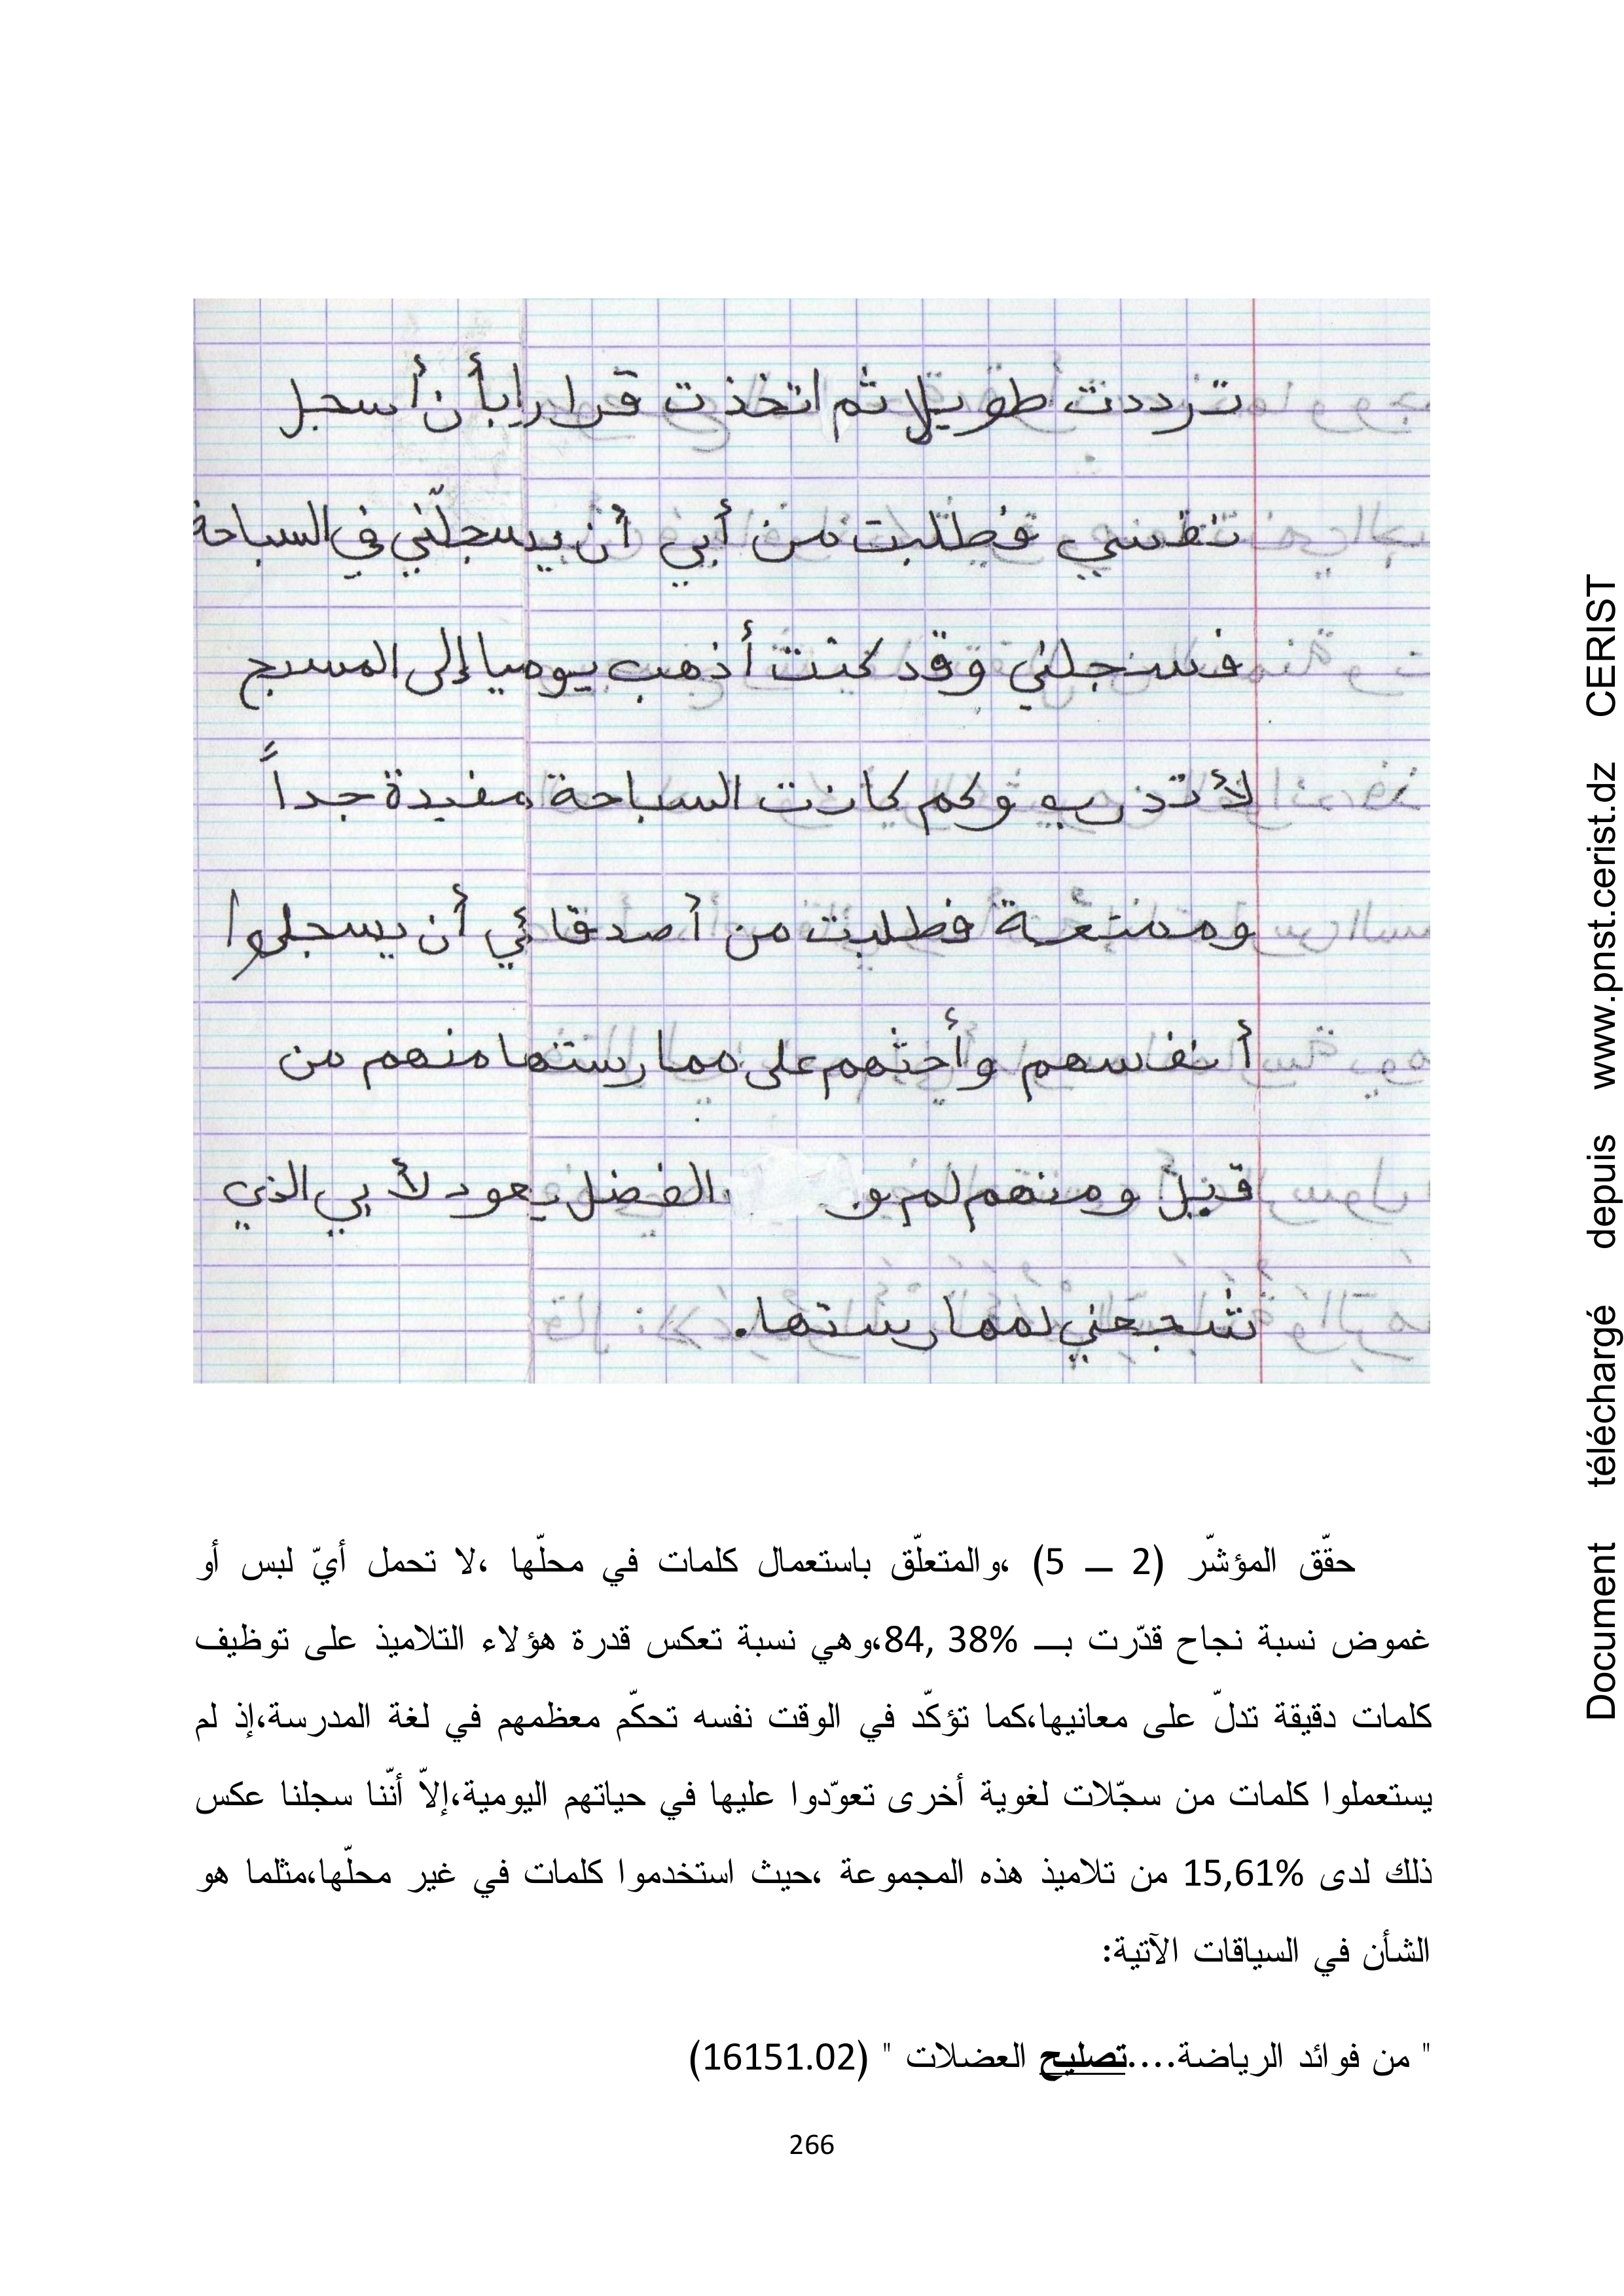 ترددت طويلا ثم اتخذت قرارا بأن أسجل
نفسي فطلبت من أبي أن يسجلّني في السباحة
فسجلني وقد كنت أذهب يوميا إلى المسبح
لأتذرب وكم كانت السباحة مفيدة جداً
وممتعة فطلبت من أصدقائي أن يسجلوا
أنفاسهم وأحثهم على ممارستها منهم من
قبل ومنهم لم الفضل يعود لأبي الذي
شجعني لممارستها.
حقّق المؤشّر (2 ــ 5) ،والمتعلّق باستعمال كلمات في محلّها ،لا تحمل أيّ لبس أو
غموض نسبة نجاح قدّرت بــ 84, 38%،وهي نسبة تعكس قدرة هؤلاء التلاميذ على توظيف
كلمات دقيقة تدلّ على معانيها،كما تؤكّد في الوقت نفسه تحكّم معظمهم في لغة المدرسة،إذ لم
يستعملوا كلمات من سجّلات لغوية أخرى تعوّدوا عليها في حياتهم اليومية،إلاّ أنّنا سجلنا عكس
ذلك لدى 15,61% من تلاميذ هذه المجموعة ،حيث استخدموا كلمات في غير محلّها،مثلما هو
الشأن في السياقات الآتية:
" من فوائد الرياضة....تصليح العضلات " (16151.02)
266
Document téléchargé depuis www.pnst.cerist.dz CERIST